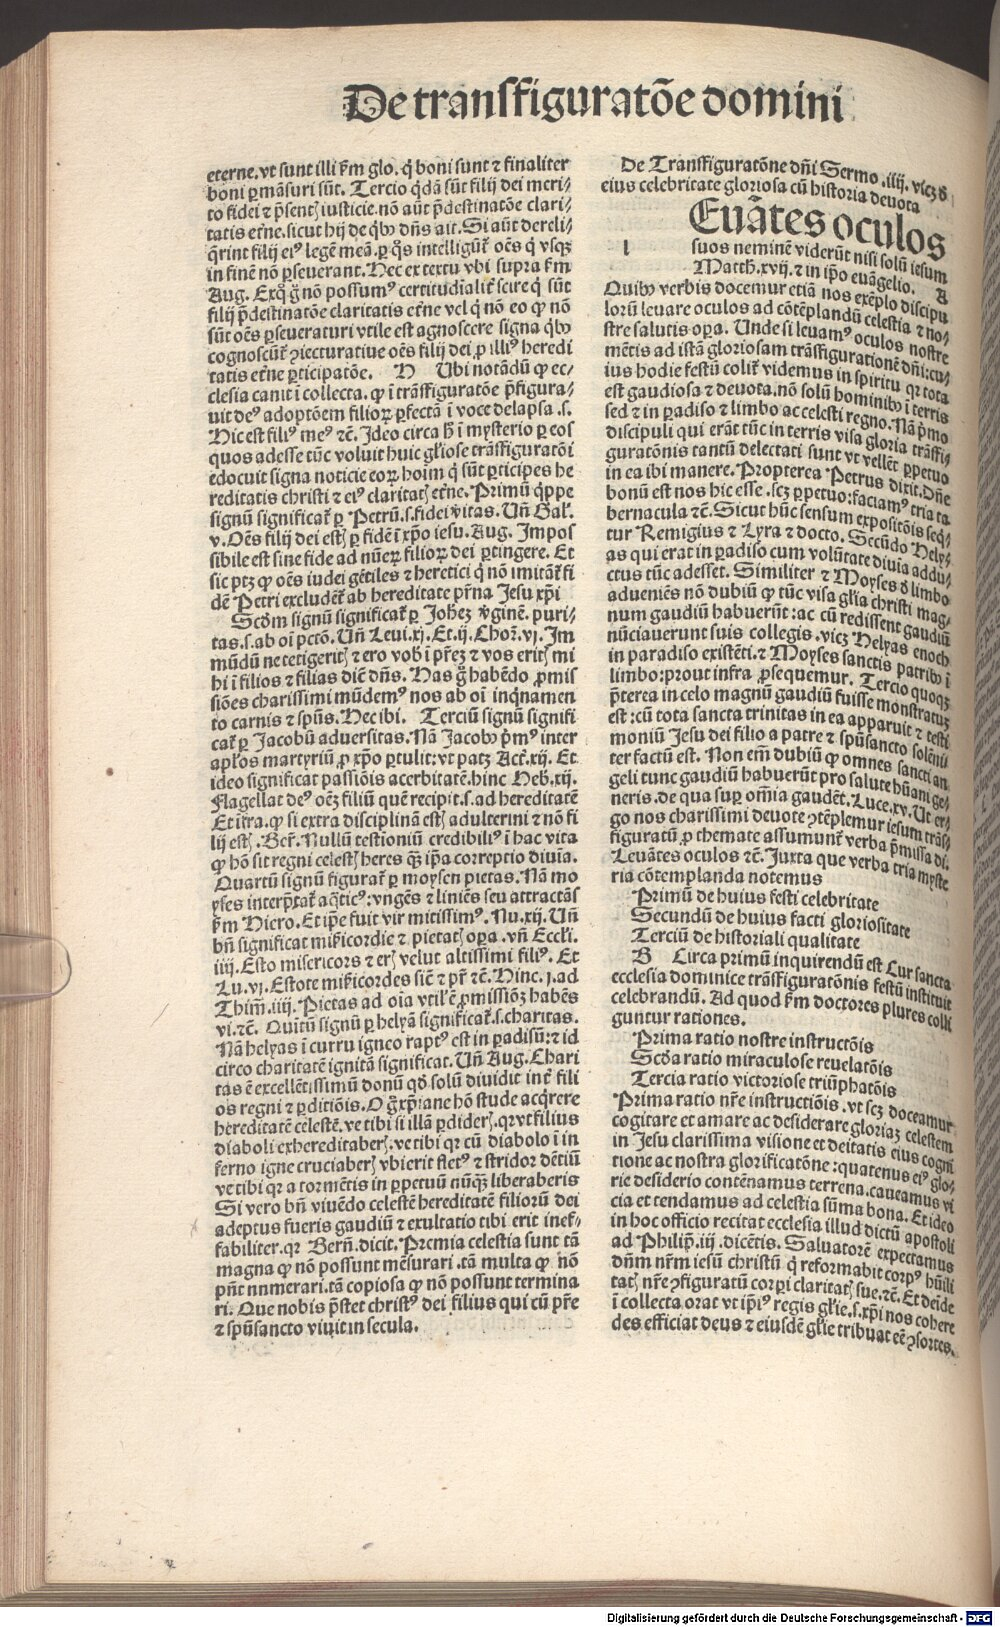 De transfiguratõe domini
eterne. vt sunt illi ẜm glo. q̇ boni sunt ⁊ finaliter
boni ꝑmãsuri sũt. Tercio q̇dã sũt filij dei meri⸗
to fidei ⁊ p̃sentꝭ iusticie. nõ aũt p̃destinatõe clari⸗
tatis et̃ne. sicut hij de q̇bꝰ dñs ait. Si aũt dereli⸗
q̃rint filij eiꝰ legẽ meã. ꝑ q̃s intelligũt᷑ oẽs q̇ vsqꝫ
in finẽ nõ ꝑseuerant. Hec ex textu vbi supra ẜm
Aug. Ex q̊ g̊ nõ possumꝰ certitudialit̃ scire q̇ sũt
filij p̃destinatõe claritatis et̃ne vel q̇ nõ eo ꝙ nõ
sũt oẽs ꝑseueraturi vtile est agnoscere signa q̇bꝰ
cognoscũt᷑ ꝯiecturatiue oẽs filij dei ꝓ illiꝰ heredi
tatis et̃ne ꝑticipatõe. H Ubi notãdũ ꝙ ec⸗
clesia canit ĩ collecta. ꝙ ĩ trãsfiguratõe p̃figura⸗
uit deꝰ adoptõem filioꝝ ꝑfectã ĩ voce delapsa .s.
Hic est filiꝰ meꝰ ⁊c̃. Ideo circa h̃ ĩ mysterio ꝑ eos
quos adesse tũc voluit huic gl̃iose trãsfiguratõi
edocuit signa noticie eoꝝ hoĩm q̇ sũt ꝑticipes he
reditatis christi ⁊ eiꝰ claritatꝭ et̃ne. Primũ q̇ppe
signũ significat᷑ ꝑ Petrũ .s. fidei vitas. Uñ Gal̃.
v. Oẽs filij dei estꝭ ꝑ fidẽ ĩ xp̃o iesu. Aug. Impos
sibile est sine fide ad nũeꝝ filioꝝ dei ꝑtingere. Et
sic ptꝫ ꝙ oẽs iudei gẽtiles ⁊ heretici q̇ nõ imitãt᷑ fi
dẽ Petri excludẽt᷑ ab hereditate pr̃na Jesu xp̃i
Scd̃m signũ significat᷑ ꝑ Johẽꝫ v̓ginẽ. puri⸗
tas .s. ab oĩ pctõ. Uñ Leui. xj. Et. ij. Choꝝ. vj. Im
mũdũ ne tetigeritꝭ ⁊ ero vob̃ ĩ pr̃eꝫ ⁊ vos eritꝭ mi
hi ĩ filios ⁊ filias dic̃ dñs. Has g̊ habẽdo ꝓmis
siões charissimi mũdemꝰ nos ab oĩ inq̇namen
to carnis ⁊ sp̃us. Hec ibi. Terciũ signũ signifi
cat᷑ ꝑ Jacobũ aduersitas. Nã Jacobꝰ p̃mꝰ inter
apl̃os martyriũ ꝓ xp̃o ꝑtulit: vt patꝫ Act̃. xij. Et
ideo significat passiõis acerbitatẽ. hinc Heb̃. xij.
Flagellat deꝰ oẽꝫ filiũ quẽ recipit .s. ad hereditatẽ
Et ĩfra. ꝙ si extra disciplinã estꝭ adulterini ⁊ nõ fi
lij estꝭ. Ber̃. Nullũ testioniũ credibiliꝰ ĩ hac vita
ꝙ hõ sit regni celestꝭ heres q̃ꝫ ip̃a correptio diuia.
Quartũ signũ figurat᷑ ꝑ moysen pietas. Nã mo
yses interp̃tat᷑ aq̃ticꝰ: vngẽs ⁊ liniẽs seu attractãs
ẜm Hiero. Et ip̃e fuit vir mitissimꝰ. Nu. xij. Uñ
bñ significat mĩẽricordie ⁊ pietatꝭ oꝑa. vñ Eccl̃i.
iiij. Esto misericors ⁊ erꝭ velut altissimi filiꝰ. Et
Lu. vj. Estote mĩẽricordes sicũ ⁊ pr̃ ⁊c̃. Hinc. j. ad
Thim̃. iiij. Pietas ad oĩa vtil̓ ẽ ꝓmissiõꝫ habẽs
vi. ⁊c̃. Quitũ signũ ꝑ helyã significat᷑ .s. charitas.
Nã helyas ĩ curru igneo raptꝰ est in ꝑadisũ: ⁊ id
circo charitatẽ ignitã significat. Uñ Aug. Chari
tas ẽ excellẽtissimũ donũ qđ solũ diuidit int̃ fili
os regni ⁊ ꝑditiõis. O g̊ xp̃iane hõ stude acq̇rere
hereditatẽ celestẽ. ve tibi si illã ꝑdiderꝭ. qꝛ vt filius
diaboli exhereditaberꝭ. ve tibi qꝛ cũ diabolo ĩ in
ferno igne cruciaberꝭ vbi erit fletꝰ ⁊ stridor dẽtiũ
ve tibi qꝛ a tormẽtis in ꝑpetuũ nũq̃ꝫ liberaberis
Si vero bñ viuẽdo celestẽ hereditatẽ filiorũ dei
adeptus fueris gaudiũ ⁊ exultatio tibi erit inef⸗
fabiliter. qꝛ Berñ. dicit. Premia celestia sunt tã
magna ꝙ nõ possunt mẽsurari. tã multa ꝙ nõ
pñt nnmerari. tã copiosa ꝙ nõ possunt termina
ri. Que nobis p̃stet christꝰ dei filius qui cũ pr̃e
⁊ sp̃usancto viuit in secula.
De Transfiguratõne dñi Sermo .iiij. vicꝫ ð
eius celebritate gloriosa cũ historia deuota
l Euãtes oculos
suos neminẽ viderũt nisi solũ iesum
Matth̃. xvij. ⁊ in ip̃o euãgelio. A
Quibꝰ verbis docemur etiã nos exẽplo discipu
lorũ leuare oculos ad cõtẽplandũ celestia ⁊ no⸗
stre salutis oꝑa. Unde si leuamꝰ oculos nostre
mẽtis ad istã gloriosam trãsfigurationẽ dñi: cu⸗
ius hodie festũ colit᷑ videmus in spiritu qꝛ tota
est gaudiosa ⁊ deuota. nõ solũ hominibꝰ ĩ terris
sed ⁊ in ꝑadiso ⁊ limbo ac celesti regno. Nã p̃mo
discipuli qui erãt tũc in terris visa gloria trãsfi⸗
guratõnis tantũ delectati sunt vt vellẽt ꝑpetuo
in ea ibi manere. Propterea Petrus dixit. Dñe
bonũ est nos hic esse .scꝫ ꝑpetuo: faciamꝰ tria ta
bernacula ⁊c̃. Sicut hũc sensum expositõis seq̃⸗
tur Remigius ⁊ Lyra ⁊ docto. Secũdo Hely⸗
as qui erat in ꝑadiso cum volũtate diuia addu⸗
ctus tũc adesset. Similiter ⁊ Moyses ð limbo
adueniẽs nõ dubiũ ꝙ tũc visa gl̃ia christi mag⸗
num gaudiũ habuerũt: ac cũ redissent gaudiũ
nũciauerunt suis collegis. vicꝫ Helyas enoch
in paradiso existẽti. ⁊ Moyses sanctis patribꝰ ĩ
limbo: prout infra ꝓsequemur. Tercio quoqꝫ
p̃terea in celo magnũ gaudiũ fuisse monstratuꝫ
est: cũ tota sancta trinitas in ea apparuit ⁊ testi
moniũ Jesu dei filio a patre ⁊ sp̃usancto solẽni⸗
ter factũ est. Non em̃ dubiũ ꝙ omnes sancti an
geli tunc gaudiũ habuerũt pro salute hũani ge⸗
neris. de qua suꝑ om̃ia gaudẽt. Luce. xv. Ut er⸗
go nos charissimi deuote ꝯtẽplemur iesum trãs⸗
figuratũ ꝓ themate assumunt᷑ verba p̃missa di.
Leuãtes oculos ⁊c̃. Juxta que verba tria myste
ria cõtemplanda notemus
Primũ de huius festi celebritate
Secundũ de huius facti gloriositate
Terciũ de historiali qualitate
B Circa primũ inquirendũ est Cur sancta
ecclesia dominice trãsfiguratõnis festũ instituit
celebrandũ. Ad quod ẜm doctores plures colli
guntur rationes.
Prima ratio nostre instructõis
Scd̃a ratio miraculose reuelatõis
Tercia ratio victoriose triũphatõis
Prima ratio nr̃e instructiõis. vt scꝫ doceamur
cogitare et amare ac desiderare gloriaꝫ celestem
in Jesu clarissima visione et deitatis eius cogni
tione ac nostra glorificatõne: quatenus eiꝰ glo⸗
rie desiderio contẽnamus terrena. caueamus vi
cia et tendamus ad celestia sũma bona. Et ideo
in hoc officio recitat ecclesia illud dictũ apostoli
ad Philip̃. iij. dicẽtis. Saluatorẽ expectamus
dñm nr̃m iesũ christũ q̇ reformabit corpꝰ hũili
tatꝭ nr̃e ꝯfiguratũ corpi claritatꝭ sue. ⁊c̃. Et deĩde
ĩ collecta orat vt ip̃iꝰ regis gl̃ie .s. xp̃i nos cohere
des efficiat deus ⁊ eiusdẽ gl̃ie tribuat eẽ ꝯsortes.
Digitalisierung gefördert durch die Deutsche Forschungsgemeinschaft - DFG